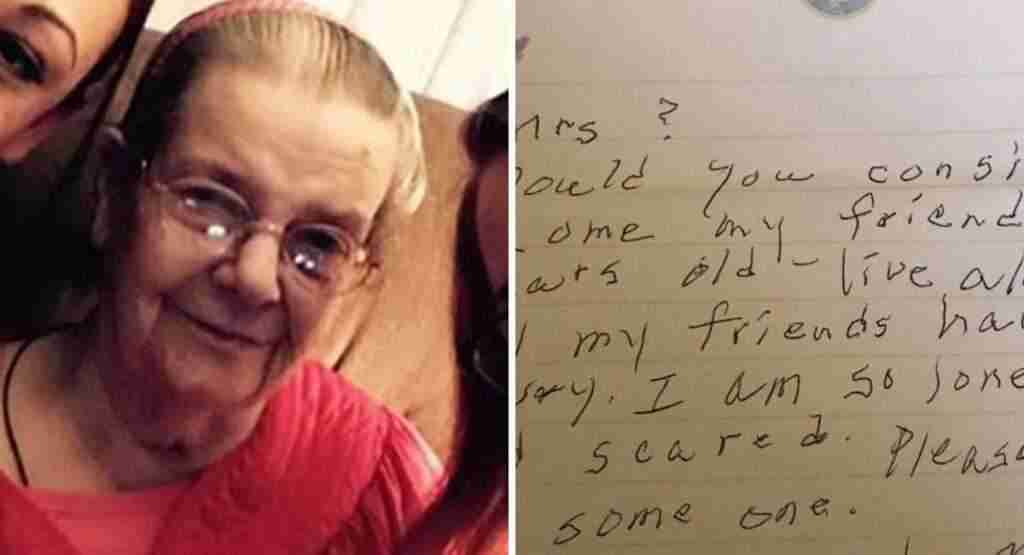 Mrs ?
ould you consi
ome my friend
ars old - live al
my friends ha
. I am so lone
scared. Pleas
some one.